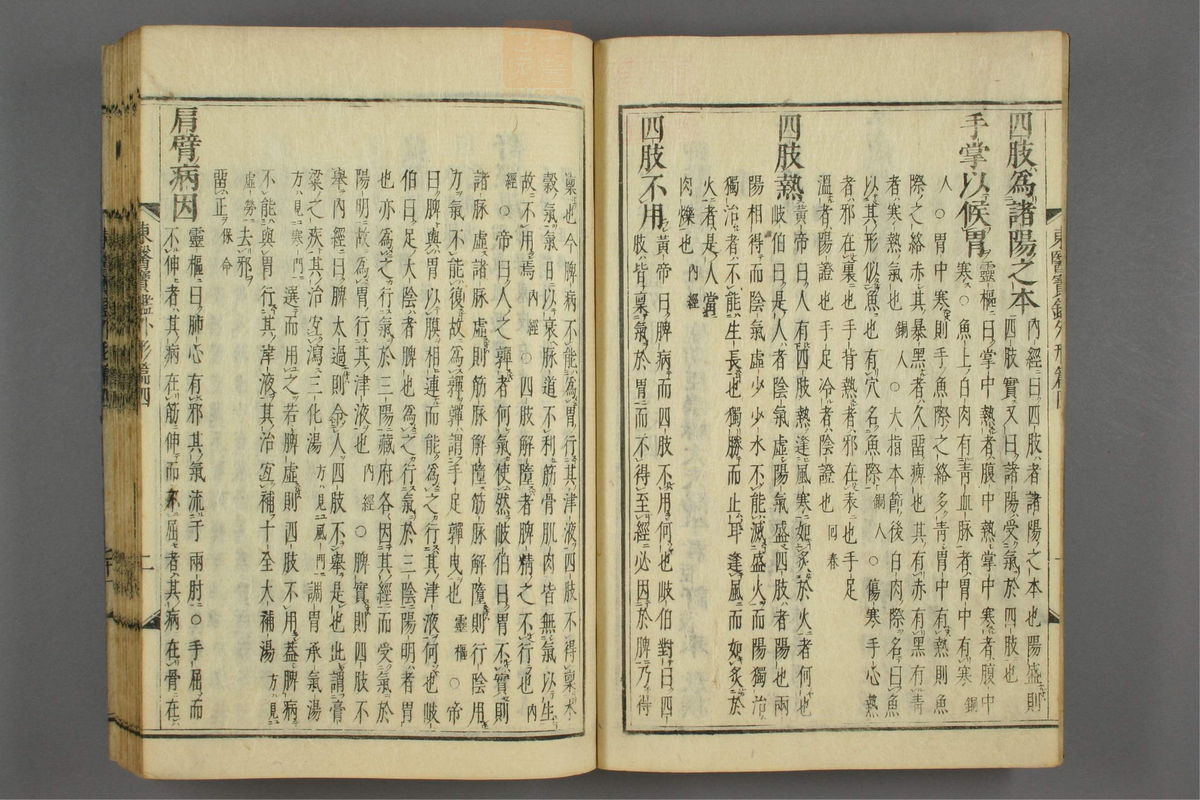 四肢為諸陽之本
內經曰四肢者諸陽之本也陽盛則
四肢實又曰諸陽受氣於四肢也
手掌以候胃
靈樞曰掌中熱者腹中熱掌中寒者腹中
寒○魚上白肉有青血脉者胃中有寒銅
人○胃中寒則手魚際之絡多青胃中有熱則魚
際之絡赤其暴黑者久留痺也其有赤有黑有青
者寒熱氣也銅人○大指本節後白肉際名曰魚
以其形似魚也有穴名魚際銅人○傷寒手心熱
者邪在裏也手背熱者邪在表也手足
溫者陽證也手足冷者陰證也回春
四肢熱
黃帝曰人有四肢熱逢風寒如炙於火者何也
岐伯曰是人者陰氣虛陽氣盛四肢者陽也兩
陽相得而陰氣虛少少水不能滅盛火而陽獨治
獨治者不能生長也獨勝而止耳逢風而如炙於
火者是人當
肉爍也內經
四肢不用
黃帝曰脾病而四肢不用何也岐伯對曰四
肢皆稟氣於胃而不得至經必因於脾乃得
稟也今脾病不能為胃行其津液四肢不得稟水
穀氣氣日以衰脉道不利筋骨肌肉皆無氣以生
故不用焉內經○四肢解墮者脾精之不行也內
經○帝曰人之嚲者何氣使然岐伯曰胃不實則
諸脉虛諸脉虛則筋脉解墮筋脉解墮則行陰用
力氣不能復故為嚲嚲謂手足嚲曳也靈樞○帝
曰脾與胃以膜相連而能為之行其津液何也岐
伯曰足大陰者脾也為之行氣於三陰陽明者胃
也亦為之行氣於三陽藏府各因其經而受氣於
陽明故為胃行其津液也內經○脾實則四肢不
舉內經曰脾太過則令人四肢不舉是也此謂膏
粱之疾其治宜瀉三化湯方見風門調胃承氣湯
方見寒門選而用之若脾虛則四肢不用蓋脾病
不能與胃行其津液其治宜補十全大補湯方見
虛勞去邪
留正保命
肩臂病因
靈樞曰肺心有邪其氣流于兩肘○手屈而
不伸者其病在筋伸而不屈者其病在骨在
東醫寶鑑外形篇四
二